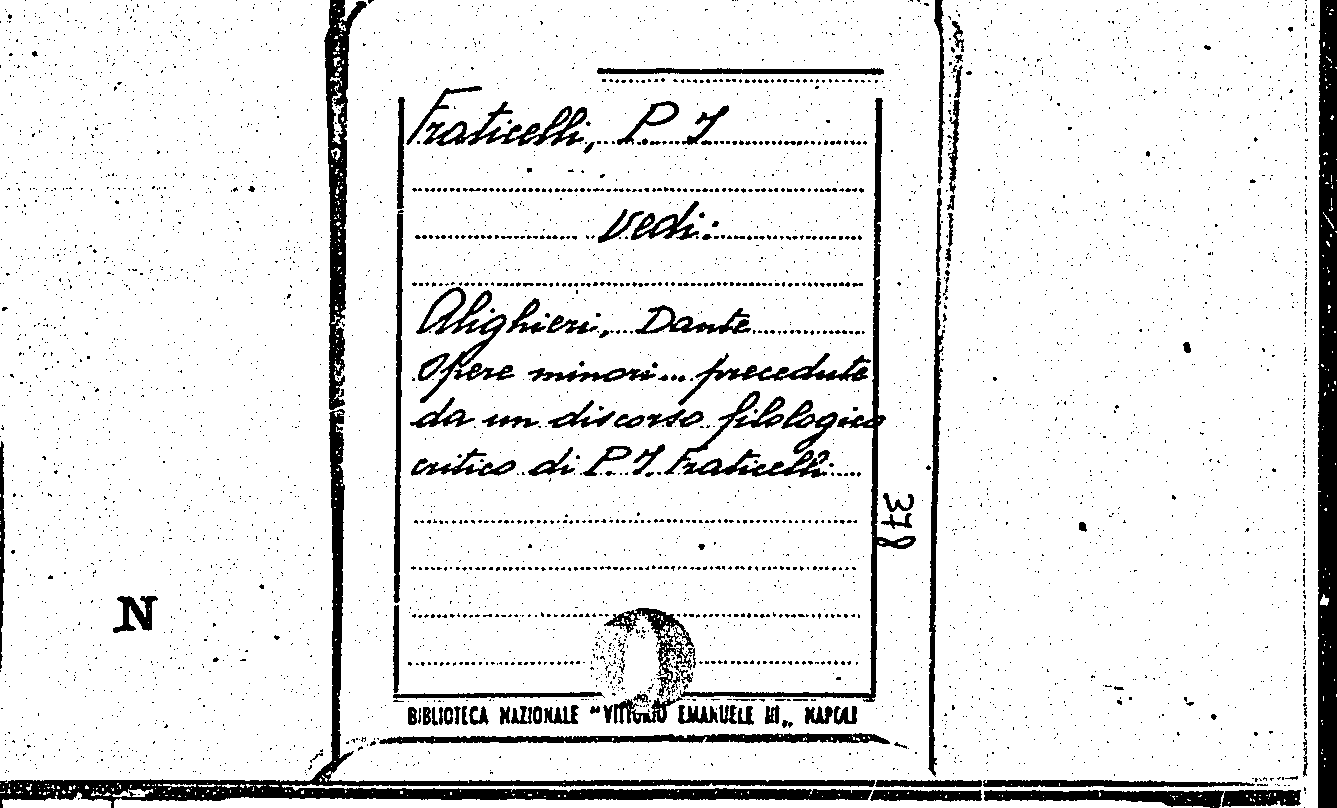 Fraticelli, P. I
vedi:
Alighieri, Dante
Opere minori... precedute
da un discorso filologico
critico di P. I. Fraticelli.
378
N
BIBLIOTECA NAZIONALE "VITTORIO EMANUELE III„ NAPOLI